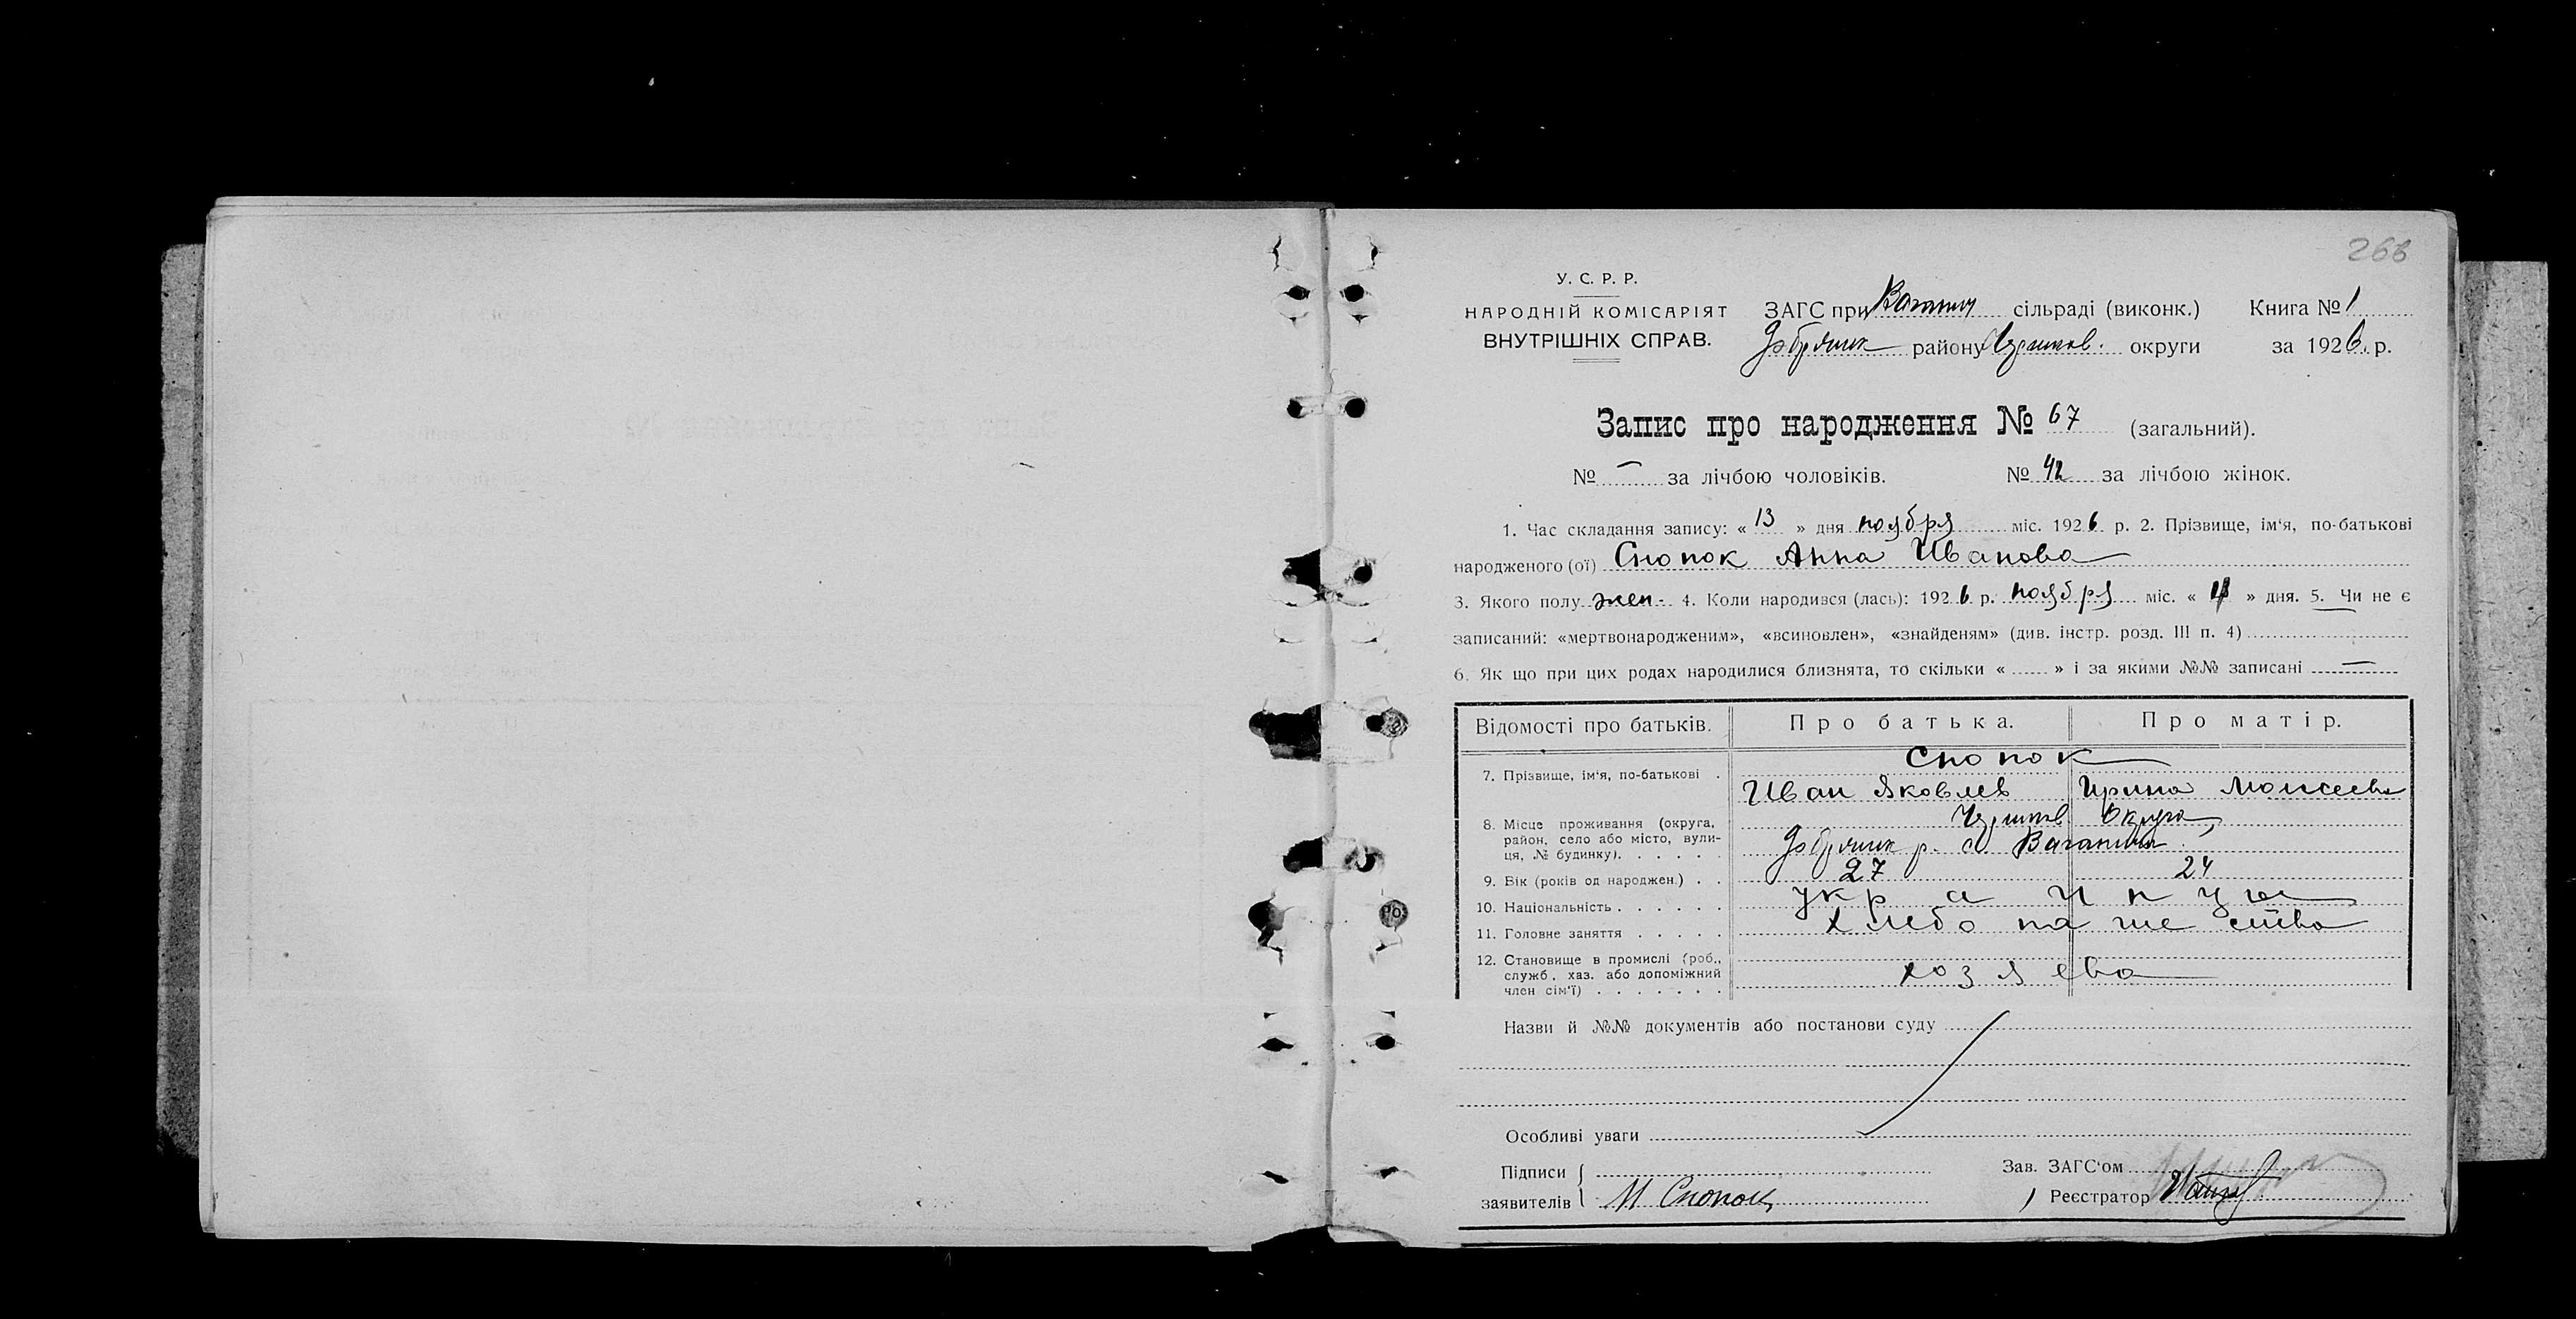 268
У. С. Р. Р.
НАРОДНІЙ КОМІСАРІЯТ
ВНУТРІШНІХ СПРАВ.
ЗАГС при сільраді (виконк.) Книга № 1
району округи за 1926 р.
Запис про народження № 67 (загальний).
№ — за лічбою чоловіків. № 42 за лічбою жінок.
1. Час складання запису: « 13 » дня ноября міс. 1926 р. 2. Прізвище, ім'я, по-батькові
народженого (ої) Снопок Анна Иванова
3. Якого полу жен. 4. Коли народився (лась): 1926 р. ноября міс. « » дня. 5. Чи не є
записаний: «мертвонародженим», «всиновлен», «знайденям» (див. інстр. розд. III п. 4)
6. Як що при цих родах народилися близнята, то скільки « » і за якими №№ записані —
Відомості про батьків. Про батька. Про матір.
7. Прізвище, ім'я, по-батькові . Снопок
Иван Яковлев Ирина Моисеева
8. Місце проживання (округа, район, село або місто, вулиця, № будинку). Округа,
р. с.
9. Вік (років од народжен.) . . 27 24
10. Національність . . . . . . украинцы
11. Головне заняття . . . . . хлебопашество
12. Становище в промислі (роб., служб., хаз. або допоміжний член сім'ї) . . . . . . . хозяева
Назви й №№ документів або постанови суду
Особливі уваги
Підписи заявителів И Снопок
Зав. ЗАГС'ом
Реєстратор